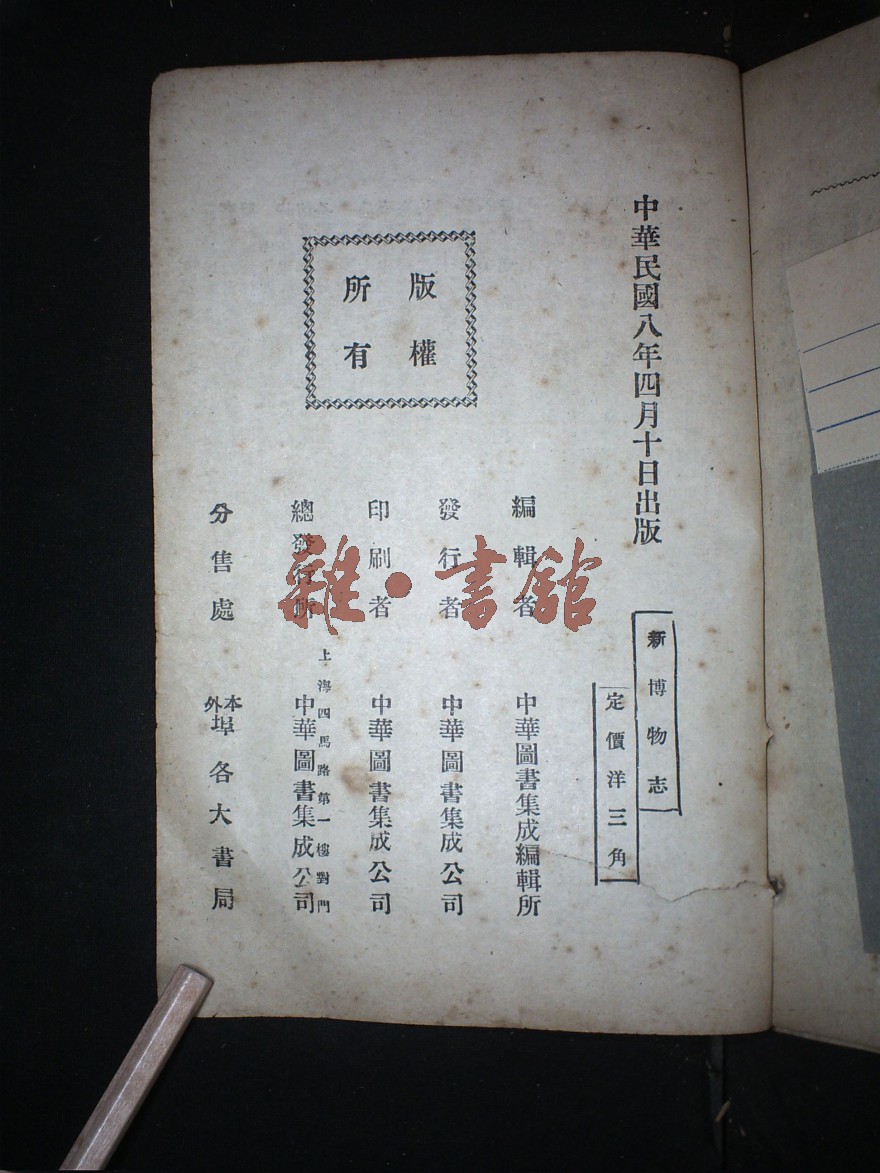 中華民國八年四月十日出版
新博物志
定價洋三角
編輯者 中華圖書集成編輯所
發行者 中華圖書集成公司
印刷者 中華圖書集成公司
總發行所 上海四馬路第一樓對門 中華圖書集成公司
分售處 本外埠各大書局
版權
所有
雜·書館